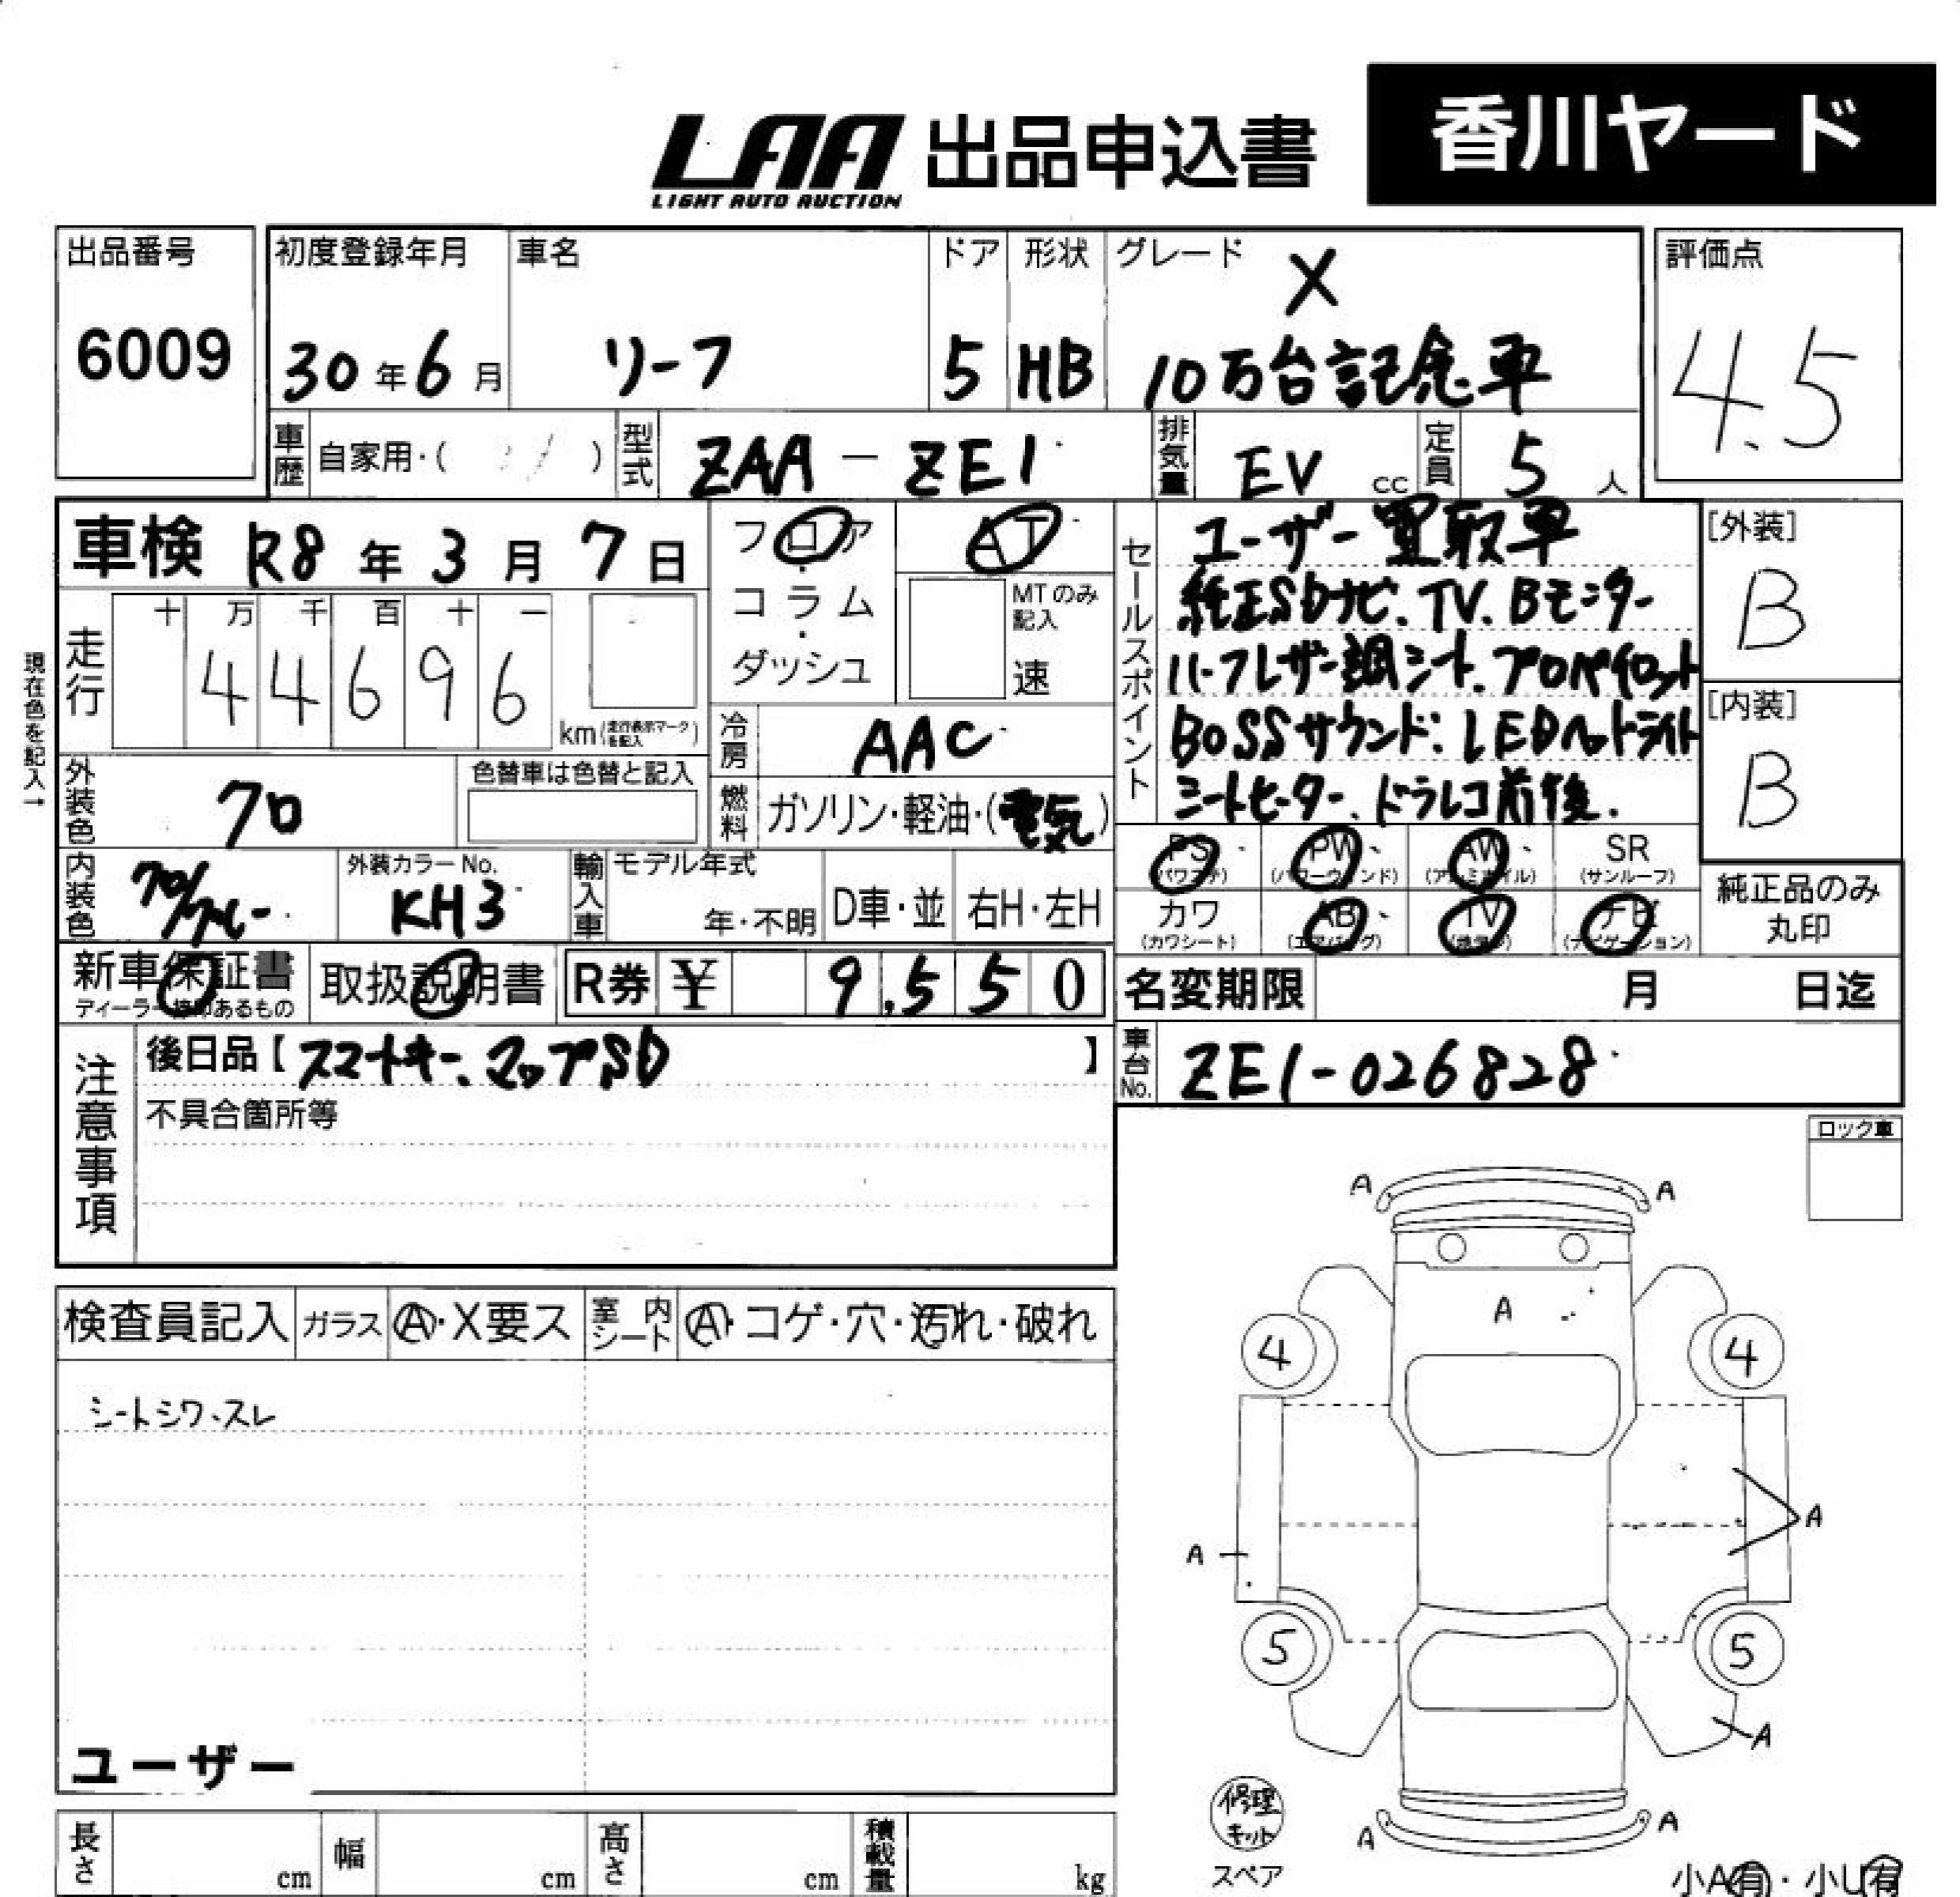 LAA 出品申込書 香川ヤード
LIGHT AUTO AUCTION
出品番号 初度登録年月 車名 ドア 形状 グレード X 評価点
6009 30年6月 リーフ 5 HB 10万台記念車 4.5
車歴 自家用・( ) 型式 ZAA-ZE1 排気量 EV cc 定員 5 人
車検 R8年3月7日 フロア AT セールスポイント ユーザー買取車 [外装]
コラム MTのみ記入 純正SDナビ.TV.Bモニター B
走行 十 万 千 百 十 一
44696 km(走行表示マークを記入)
・ダッシュ 速 ハーフレザー調シート.プロパイロット [内装]
現在色を記入→
冷房 AAC BOSSサウンド:LEDヘッドライト B
外装色 クロ 色替車は色替と記入 燃料 ガソリン・軽油・(電気) シートヒーター、ドラレコ前後.
内装色 クロ/グレー 外装カラーNo. KH3 輸入車 モデル年式 年・不明 D車・並 右H・左H
PS (パワステ) PW (パワーウィンド) AW (アルミホイル) SR (サンルーフ)
カワ (カワシート) AB (エアバッグ) TV (地デジ) ナビ (ナビゲーション) 純正品のみ丸印
新車保証書 ディーラー捺印あるもの 取扱説明書 R券 ¥ 9,550 名変期限 月 日迄
注意事項 後日品【スマートキー、マップSD】 車台No. ZE1-026828
不具合箇所等
ロック車
検査員記入 ガラス A・X要ス 室内シート A・コゲ・穴・汚れ・破れ
シートシワ、スレ
ユーザー
A A
A
4 4
A
A
5 5
A
A A
修理キット
スペア
小A有・小U有
長さ cm 幅 cm 高さ cm 積載量 kg